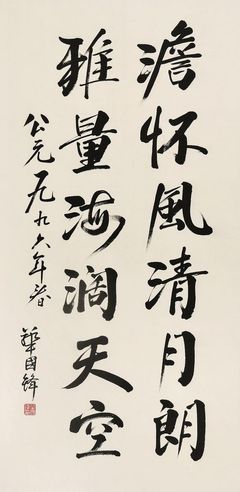 澹怀風清月朗
雅量海阔天空
公元一九九六年春
華國鋒